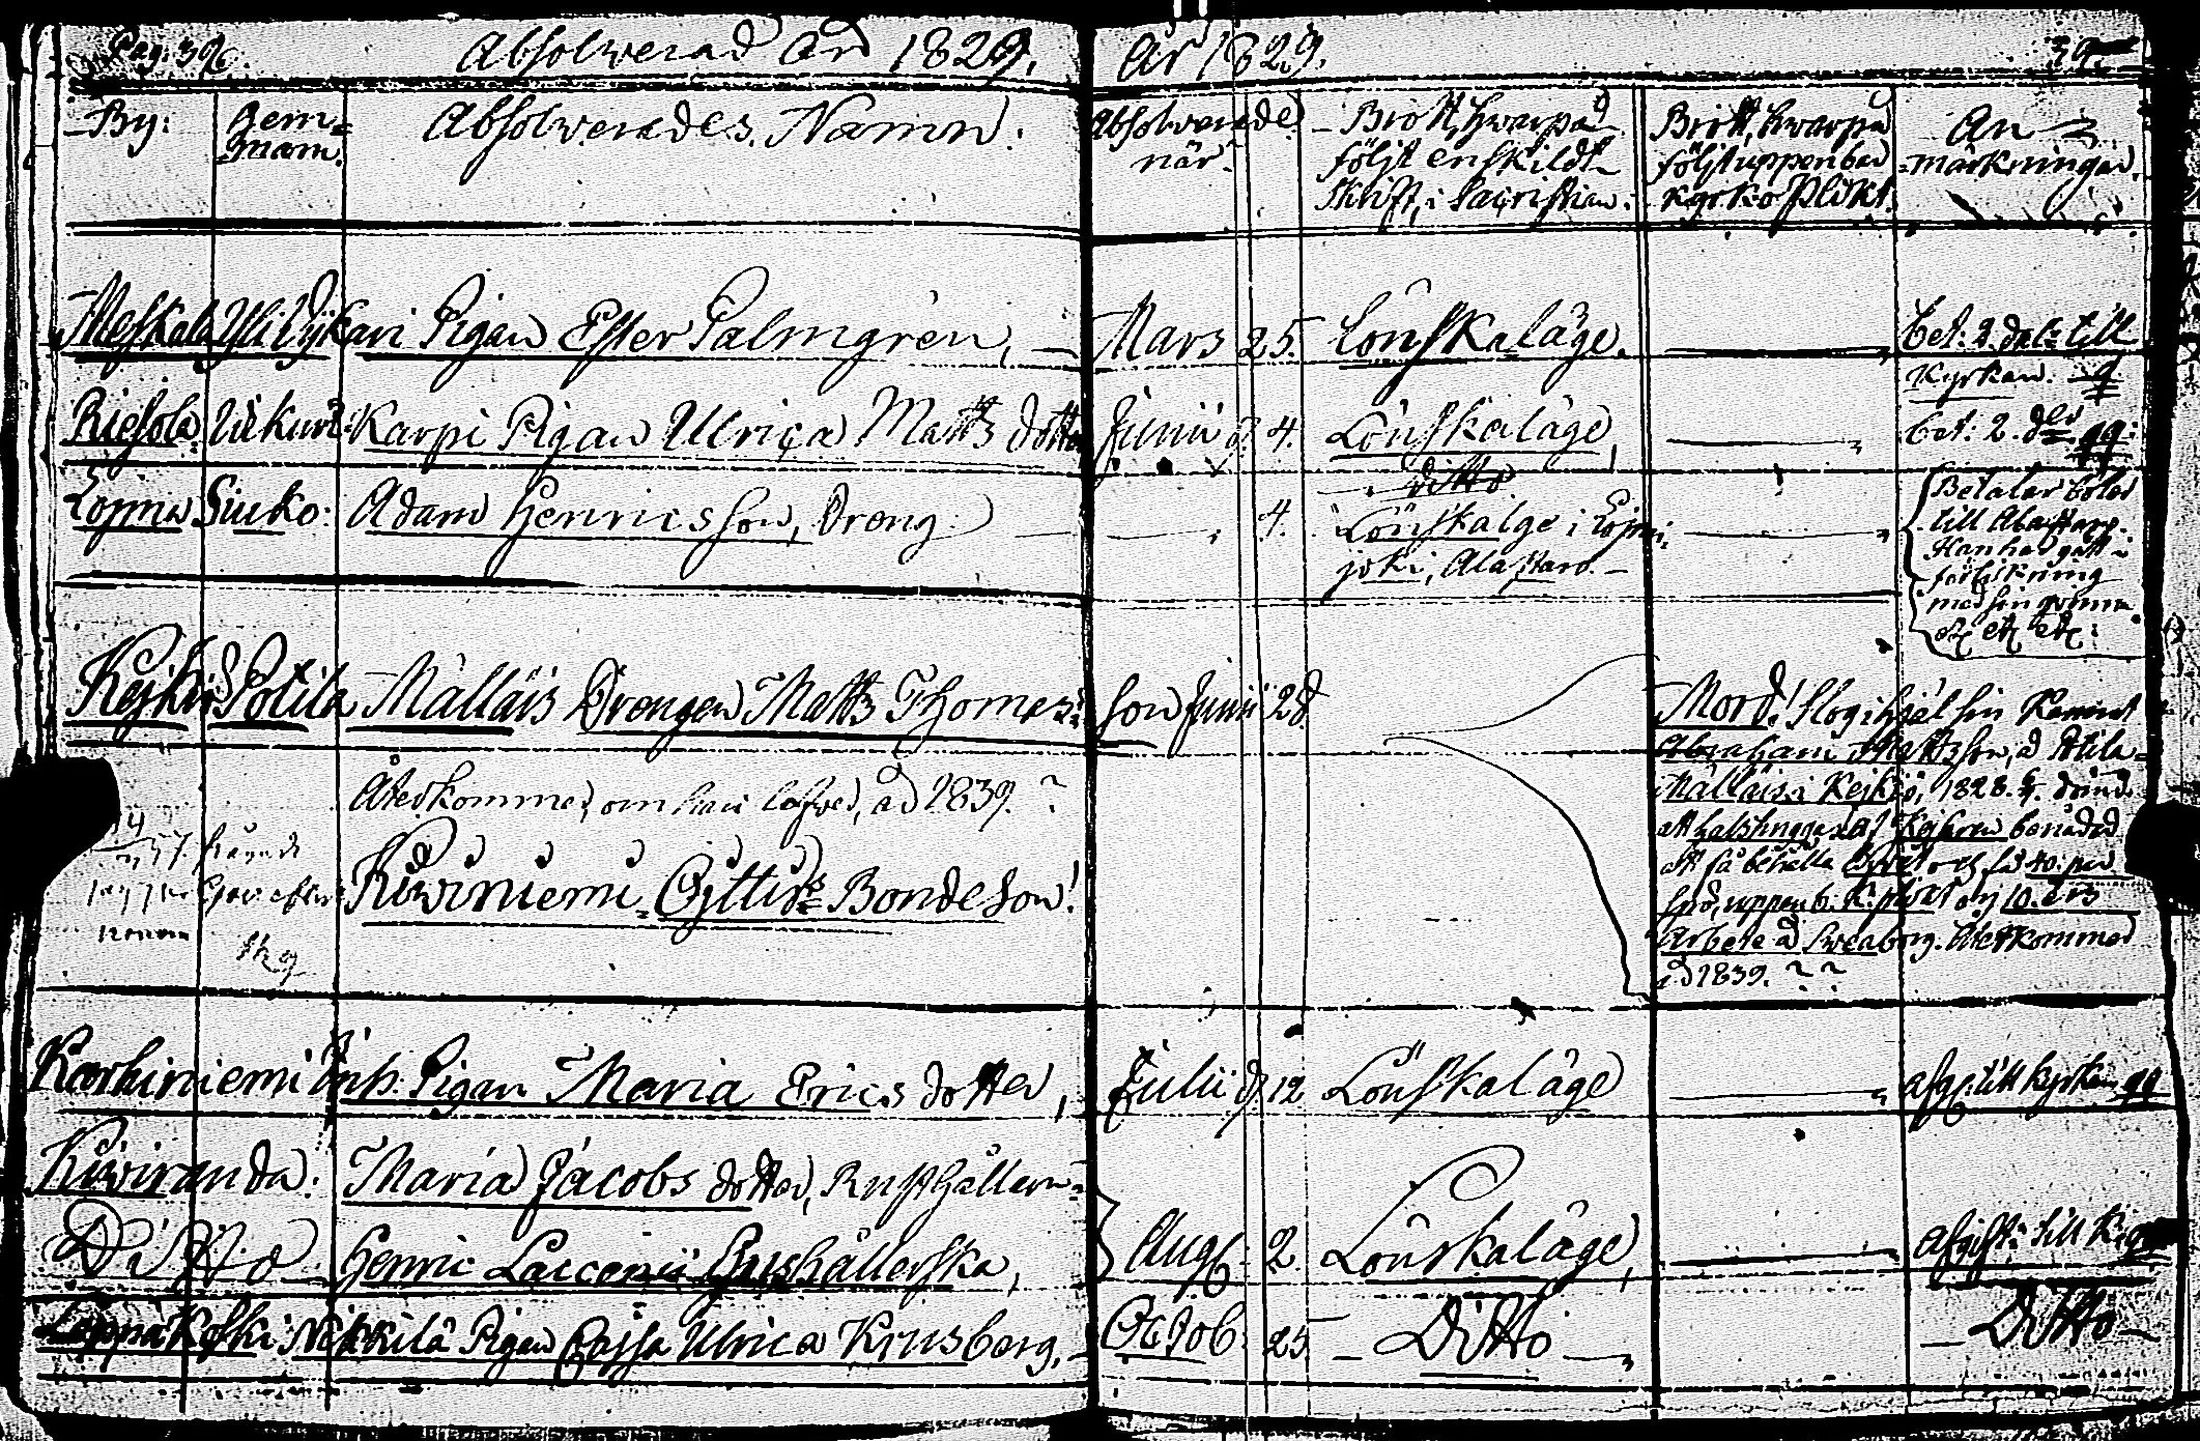 Pag. 396. Absolverad År 1829. År 1829.
By: Hem=
man. Absolverades Namn. Absolverade
när. Brott, hwarpå
följt enskildt
Skrift, i Sacristian. Brott, hwarpå
följt uppenbar
kyrkoplikt. An=
märkningar.
Meskala Yli Pijkari Pigan Ester Palmgren, Mars 25. Lönskaläge. bet: 2. dal: till
kyrkan.
Riesola Uikuri: Karpi Pigan Ulrica Matts dotter Junii d. 4. Lönskaläge, bet: 2. der
ditto
Siuko: Adam Henricsson, Dreng 4. Lönskalge i
joki, Alastaro. Betalar böter
till Alastaro.
Han har gått i
med sin qvinna
etc etc etc:
Kejkiö Potila Mälläis Drengen Matts Thomas=
son Junii 28. Mord! Slog ihjäl sin
Abraham Mattsson, å Potila
Mälläis i Kejkiö, 1828.
att halshuggas af Kejsaren benådad
att få behålla och få 40. par
spö, uppenb. K. plikt och 10. års
Arbete å Sweaborg. Återkommer
åd 1839. ? ?
Återkommer, om han lefwer, åd 1839. ?
Kiwiniemi Ojttis Bondeson!
Karhiniemi Inh. Pigan Maria Erics dotter, Julii d. 12 Lönskaläge afg. till kyrkan
Kiwiranda: Maria Jacobs dotter, Rusthållare=
Ditto Henric Hushållerska, Aug: 2 Lönskaläge, afgift: till K.
Koski: Nikkilä Pigan Cajsa Ulrica Krusberg, Octob. 25 Ditto Ditto